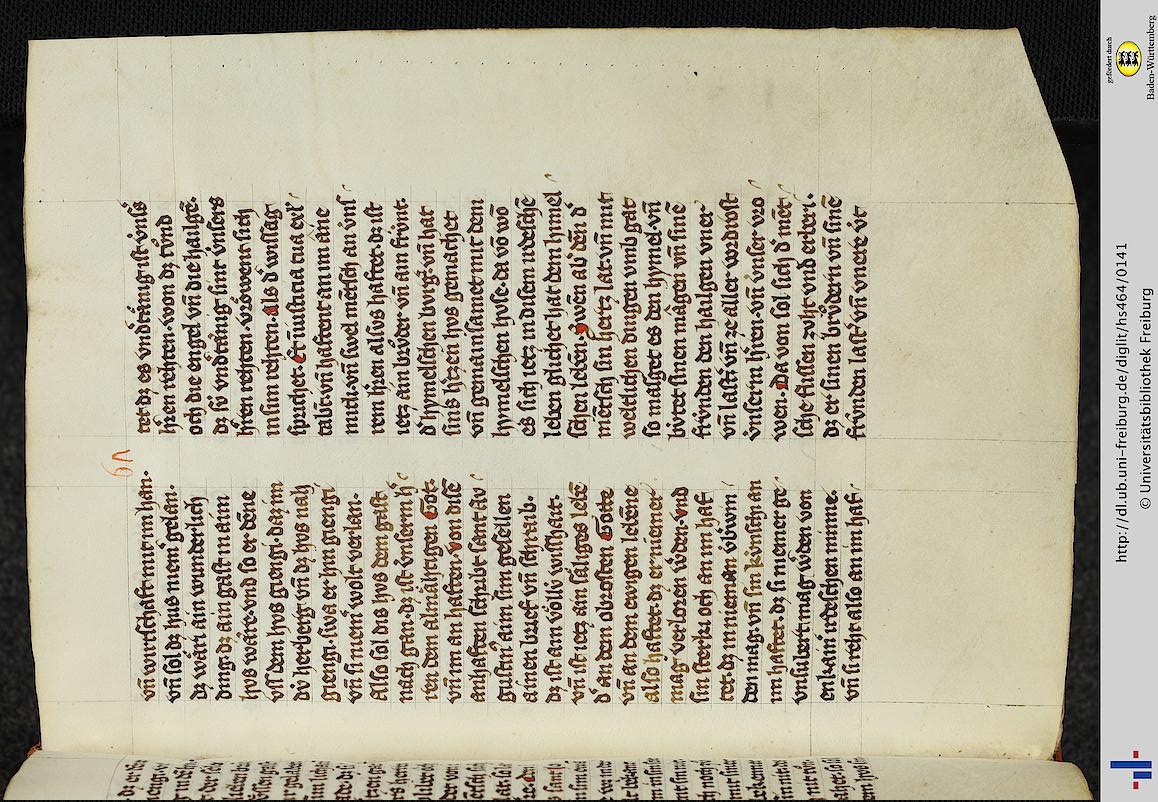 vñ wirtschaft mit im han.
vñ sol dz hus niem̄ gelan.
dz wäri ain wunderlich
ding. dz ain gast in aim
hvs wäre. vnd so er dēne
vss dem hvs giengi. daz im
dv̓ herberg vñ dz hvs nah
giengi. swa er hin giengi
vñ si niem̄ wolt verlan.
Also sol dis hvs dem gast
nach gan. dz ist vnserm h̓
ren dem almähtigen Got.
vñ im an haften. von disē
anhaften schribt sant Av
gustin̄ aim sim gesellen
ainen brief vñ schrib.
dz ist ain völlv̓ wishait.
vñ ist ietz ain säliges lebē
d̓ an dem obrosten Gotte
vñ an dem ewigen lebēne
also haftet. dz er niemer
mag verloren w̓den. vnd
sin sterki och an im haf
tet. dz in nieman v̓biwin
den mag. vñ sin an
im haftet. dz si niemer ge
vnsubert mag w̓den von
enkain irdeschen minne.
vñ si reht also an im haf
tet dz es vnd̓tänig ist vnsˢ
h̓ren rehten. von dz tv̊nd
och die engel vñ die hailgē.
dz sv̓ vnd̓tänig sint vnsers
h̓ren rehten. vröwent sich
in sim rehten. Als d̓ wissag
sprichet. Et iusticia tua exl̓
tabt. vñ haftent an im ane
mich. vñ swel mētsch an vnſ
rem h̓ren alsvs haftet. dz ist
ietz ain brv̊der. vñ ain frv̓nt.
d̓ hymelschen bvrg. vñ hat
sins h̓rzen hvs gemachet
vñ gemainsamet mit dem
hymelschen hvse. da vō wō
es sich ietz in disem irdeschē
leben glichet hat dem himel
schen leben. Gwen ab den d̓
mētsch sin hertz lat. vñ mit
weltlichen dingen vmb gat
so masget es den hymel. vñ
bv̓tet sinen mägen vñ sinē
frv̓nden den hailgen vner
vñ lastˢ. vñ ze aller vordrost
vnserm h̓ren. vñ vnser vro
wen. Da von sol sich d̓ mēt
sche flissen zvht vnd erberi.
dz er sinen brv̊dern vñ sinē
frv̓nden lastˢ vñ vnere v̓t
http://dl.ub.uni-freiburg.de/diglit/hs464/0141
© Universitätsbibliothek Freiburg
gefördert durch
Baden-Württemberg